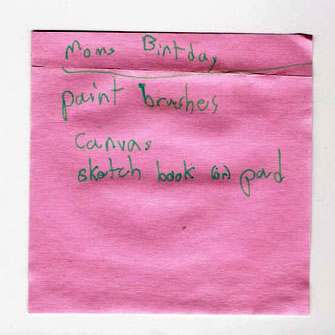 Moms Birtday
paint brushers
Canvas
sketch book or pad